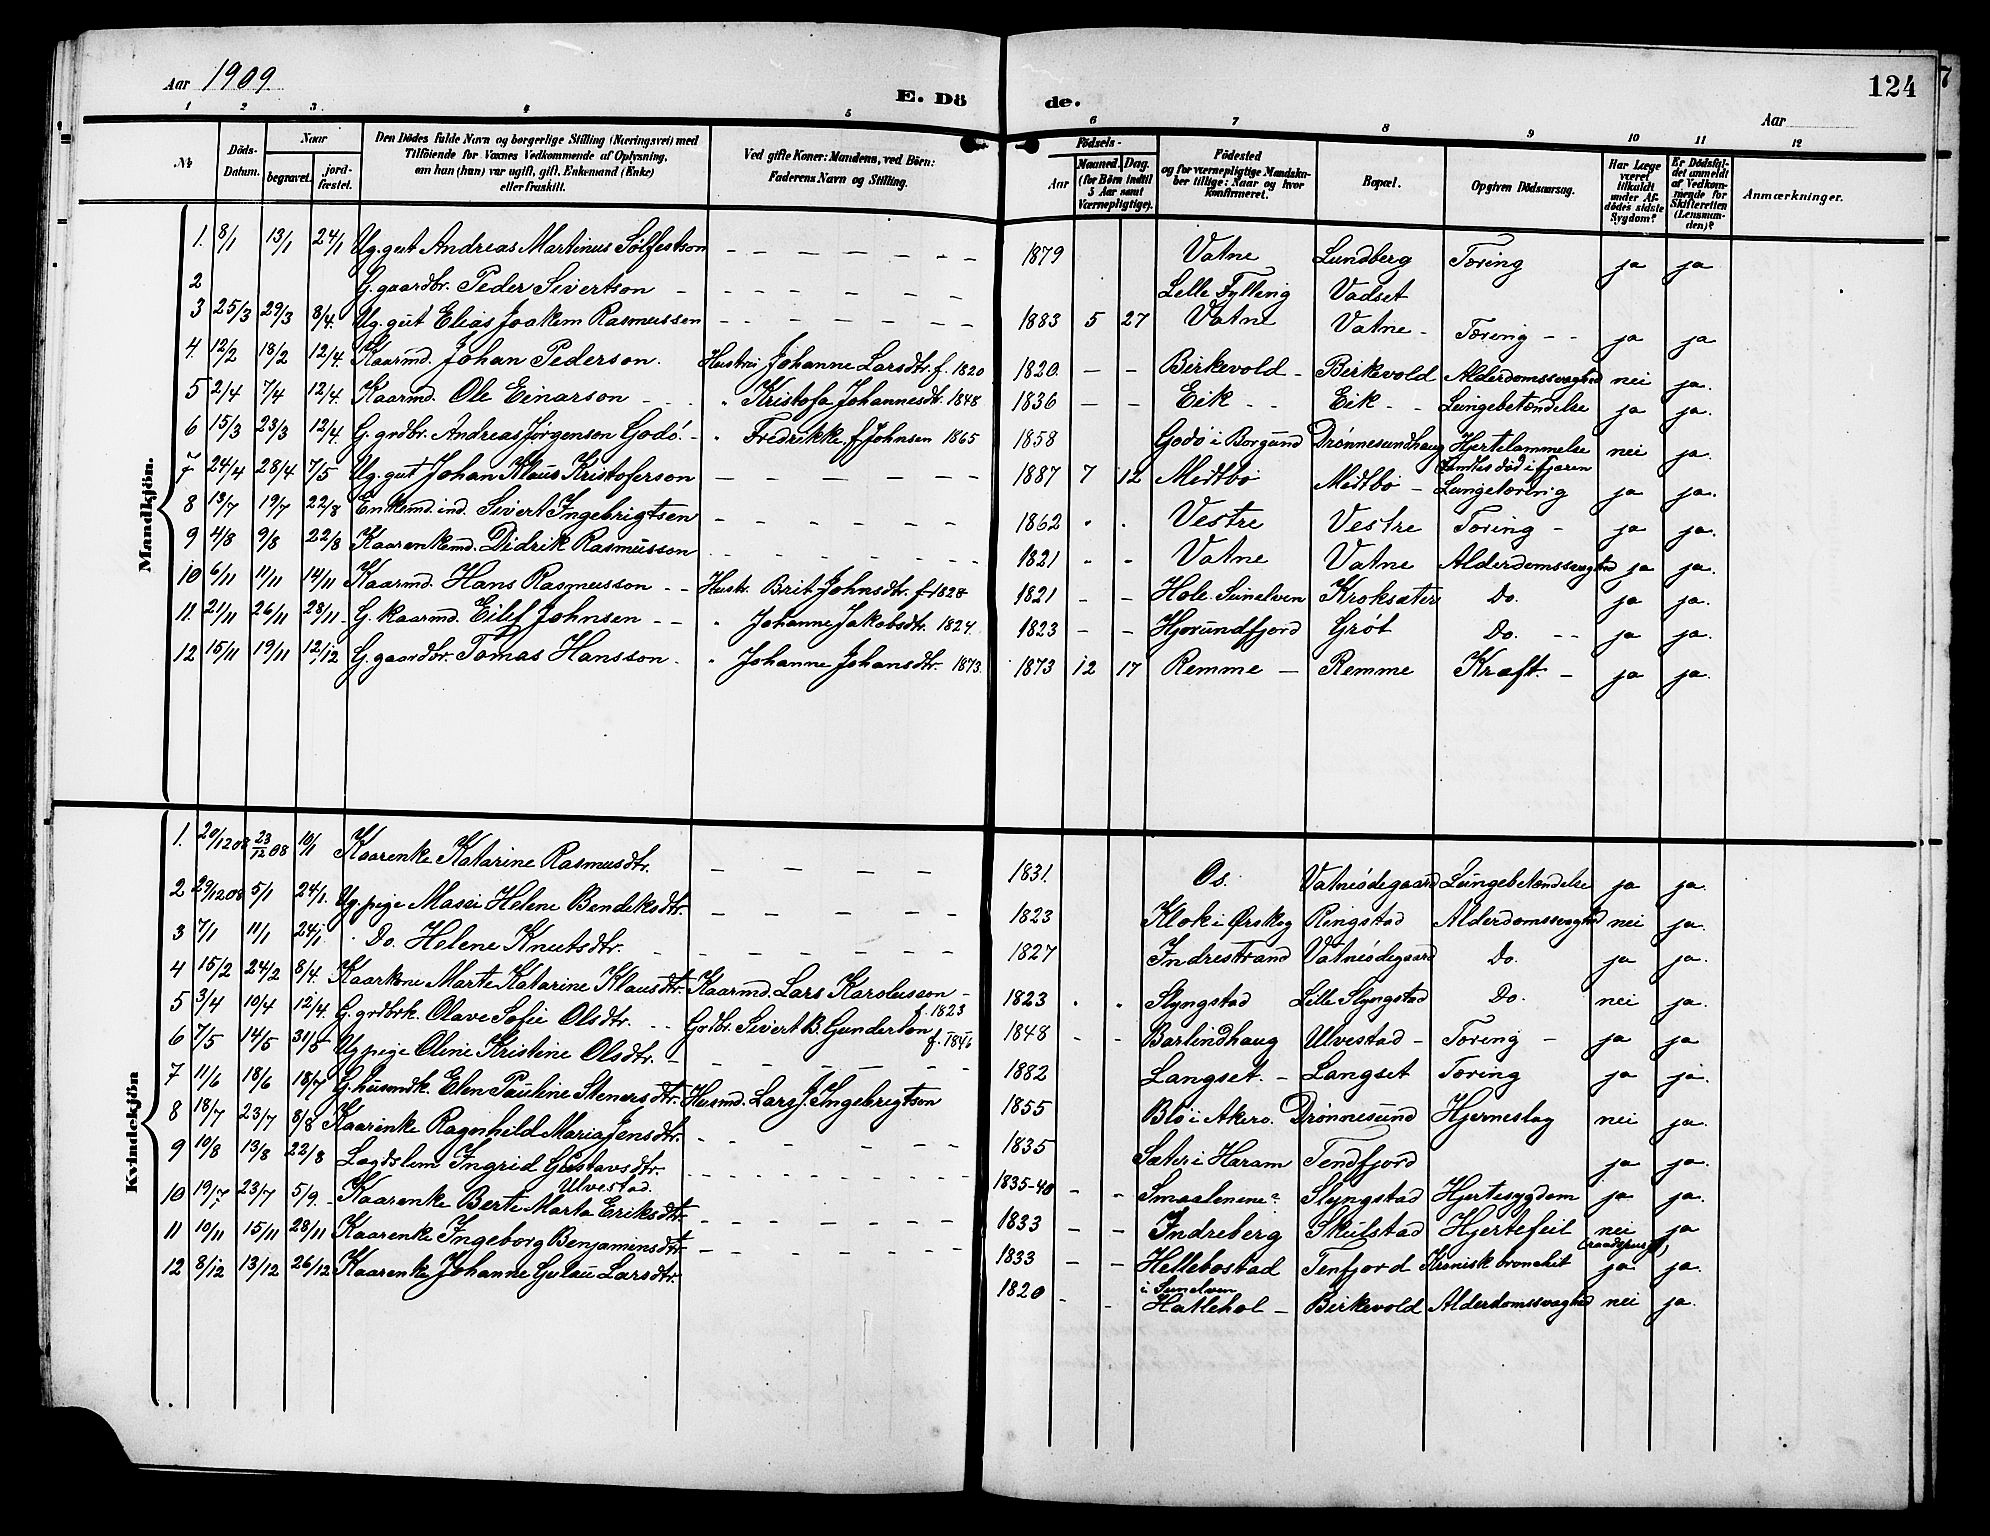 Aar 1909.
E. Dö de.
124
7
Aar
1 2 3. 4 5 6 7 8 9 10 11 12
№ Döds-Datum. Naar begravet. jord-fæstet. Den Dödes fulde Navn og borgerlige Stilling (Næringsvei) med Tilföiende for Voxnes Vedkommende af Oplysning, om han (hun) var ugift, gift, Enkemand (Enke) eller fraskilt. Ved gifte Koner: Mandens, ved Börn: Faderens Navn og Stilling. Födsels- Aar Maaned. Dag. (for Börn indtil 5 Aar samt Værnepligtige). Födested og for værnepligtige Mandskaber tillige: Naar og hvor konfirmeret. Bopæl. Opgiven Dödsaarsag. Har Læge været tilkaldt under Afdödes sidste Sygdom? Er Dödsfaldet anmeldt af Vedkommende for Skifteretten (Lensmanden)? Anmærkninger.
Mandkjön.
1. 8/1 13/1 24/1 Ug. gut Andreas Martinus Solfestson - - - - - - - 1879 Vatne Lundberg Tæring ja ja
2 G. gaardbr. Peder Sivertson - - - - - - - Lille Fylling Vadset
3 25/3 29/3 8/4. Ug. gut Elias Joakim Rasmussen - - - - - - - 1883 5 27 Vatne Vatne - Tæring - - ja ja
4. 12/2 18/2 12/4. Kaarmd. Johan Pederson. Hustru Johanne Larsdtr. f. 1820 1820. - - Birkevold - Birkevold Alderdomssvaghed nei ja.
5 2/4 7/4 12/4. Kaarmd. Ole Einarson - - - " Kristofa Johannesdtr. 1848 1836 - - Eik - - Eik - - Lungebetændelse ja ja.
6 15/3 23/3 12/4. G. grdbr. Andreas Jørgenson Godö. - " Fredrikke, f. Johnsen 1865 1858 Godö i Borgund Drønnesundhaug Hjertelammelse nei ja. fandtes död i fjæren
7 24/4 28/4 7/5 Ug. gut Johan Klaus Kristoferson - - - - - - 1887 7 12 Medtbö Medtbö - Lungetæring ja ja.
8 13/7 19/7 22/8 Enkemd. ind. Sivert Ingebrigtsen - - - - - - - 1862 " . Vestre Vestre Tæring - ja ja.
9 4/8 9/8 22/8 Kaarenkemd. Didrik Rasmusson - - - - - - - 1821 " " Vatne Vatne Alderdomssvaghed ja ja.
10 6/11 11/11 14/11 Kaarmd. Hans Rasmusson - - Hustr. Brit Johnsdtr. f. 1828 1821 - - Hole. Sunelven Kroksæter Do. ja ja.
11. 21/11 26/11 28/11. G. kaarmd. Eilef Johnsen - - " Johanne Jakobsdtr. 1824. 1823 - - Hjørundfjord Grøt Do. - - ja ja.
12 15/11 19/11 12/12 G. gaardbr. Tomas Hansson. " Johanne Johansdtr. 1873. 1873 12 17 Remme - Remme Kræft. - ja ja.
Kvindekjön
1. 20/12 08 23/12 08 10/1 Kaarenke Katarine Rasmusdtr. - - - - - - 1831. Os. Vatneödegaard Lungebetændelse ja ja.
2 29/12 08 5/1 24/1. Ug. pige Helene Bendeksdtr. - - - - - - 1823 Klok i Ørskog Ringstad Alderdomssvaghed nei ja.
3 7/1 11/1 24/1 . Do. Helene Knutsdtr. - - - - - - - 1827 Indrestrand Vatneödegaard Do. ja ja.
4 15/2 24/2 8/4. Kaarkone Marte Katarine Klausdtr. Kaarmd. Lars Karolusson - f. 1823 1823 " " Slyngstad Lille Slyngstad Do. nei ja.
5 3/4 10/4 12/4. G. grdbrk. Olave Sofie Olsdtr. - - Grdbr. Sivert B. Gunderson f. 1846 1848 - " Barlindhaug Ulvestad - Tæring - ja ja
6 7/5 14/5 31/5 Ug. pige Oline Kristine Olsdtr. - - - - - - - - 1882 Langset. - Langset Tæring ja ja.
7 11/6 18/6 18/7 G. husmdk. Elen Pauline Stenersdtr. Husmd. Lars J. Ingebrigtson 1855 Blö i Akerö. Drønnesund Hjerneslag nei ja.
8 18/7 23/7 8/8 Kaarenke Ragnhild Maria Jensdtr. - - - - - - 1835 Sæter i Haram Tendfjord ja ja.
9 10/8 13/8 22/8 Lægdslem Ingrid Gustavsdtr. Ulvestad. - - - - - - - - 1835-40 - " Smaalenene? Slyngstad Hjertesygdom ja ja.
10 19/7 23/7 5/9. - Kaarenke Berte Marta Eriksdtr. - - - - - - - - 1833 - - Indreberg Skulstad Hjertefeil nei ja (raadspurgt)
11 10/11 15/11 28/11 Kaarenke Ingeborg Benjaminsdtr. - - - - - - - 1833 - - Hellebostad i Sunelven Tenfjord Kronisk bronchit ja ja.
12 8/12 13/12 26/12 Kaarenke Johanne Gulau Larsdtr. 1820 - - Hatlehol - Birkevold Alderdomssvaghed nei ja.